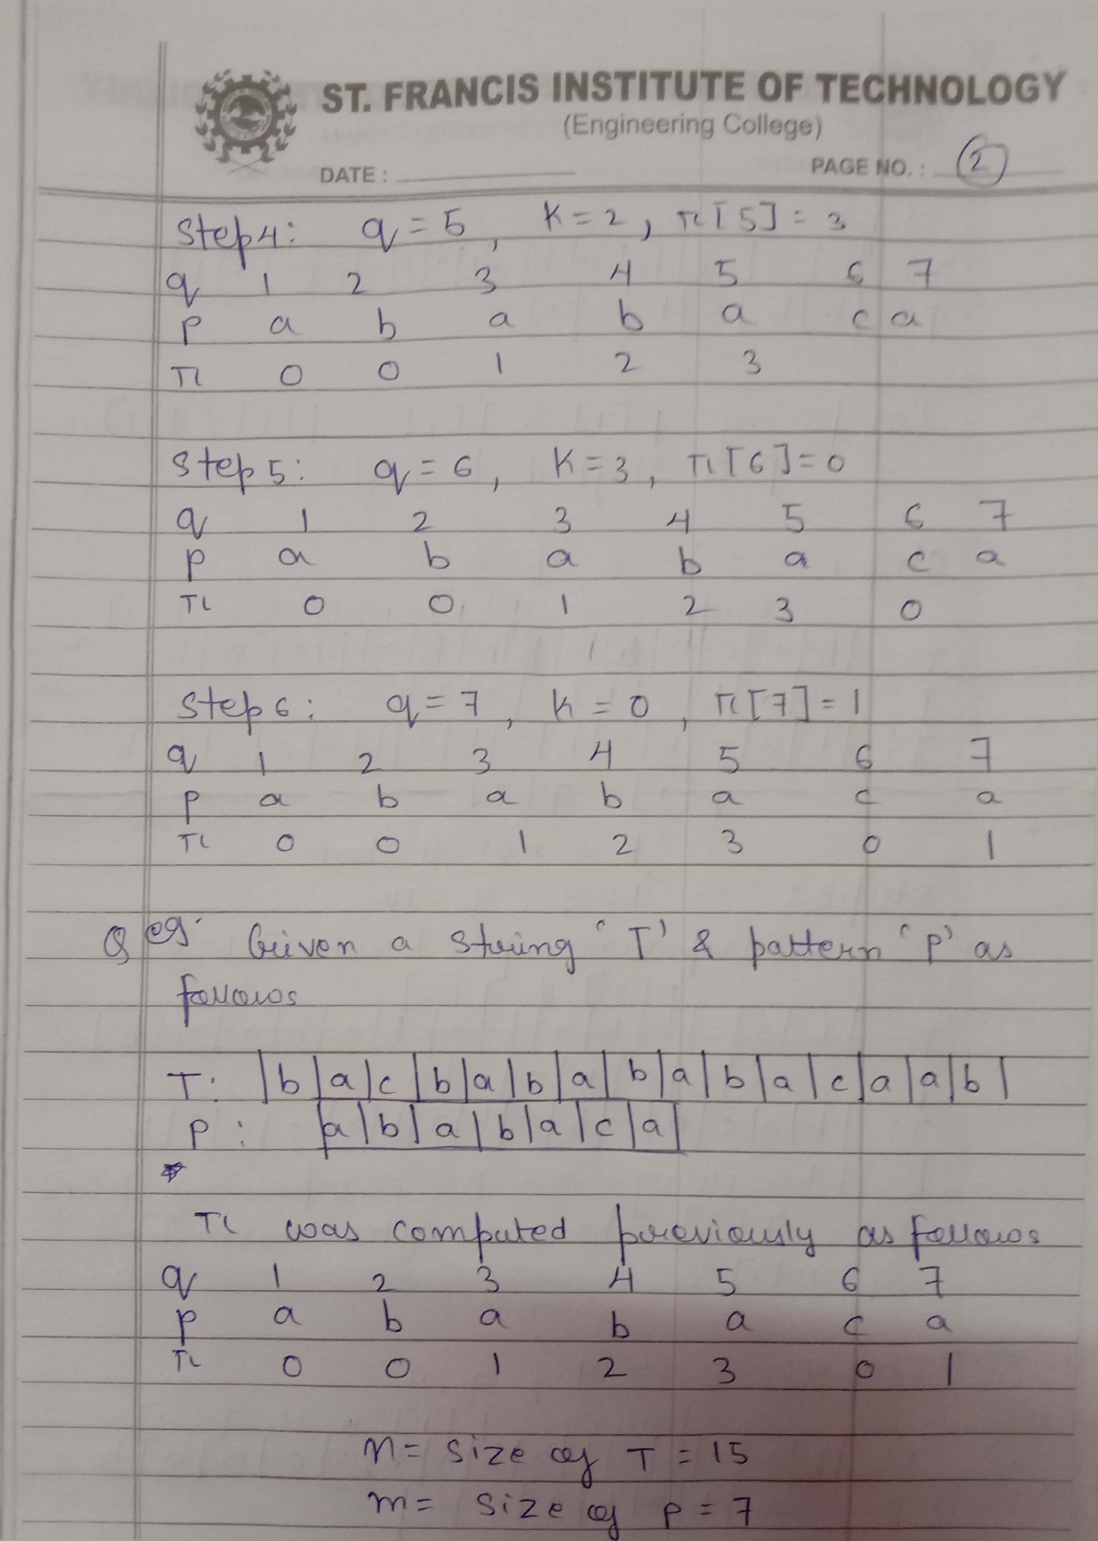 ST. FRANCIS INSTITUTE OF TECHNOLOGY
(Engineering College)
DATE :
PAGE NO. : 2
Step 4: q = 5, K = 2, π[5] = 3
q 1 2 3 4 5 6 7
p a b a b a c a
π 0 0 1 2 3
Step 5: q = 6, K = 3, π[6] = 0
q 1 2 3 4 5 6 7
p a b a b a c a
π 0 0 1 2 3 0
Step 6: q = 7, k = 0, π[7] = 1
q 1 2 3 4 5 6 7
p a b a b a c a
π 0 0 1 2 3 0 1
Q eg. Given a string 'T' & pattern 'P' as
follows
T: |b|a|c|b|a|b|a|b|a|b|a|c|a|a|b|
P: |a|b|a|b|a|c|a|
π was computed previously as follows
q 1 2 3 4 5 6 7
p a b a b a c a
π 0 0 1 2 3 0 1
n = size of T = 15
m = size of p = 7